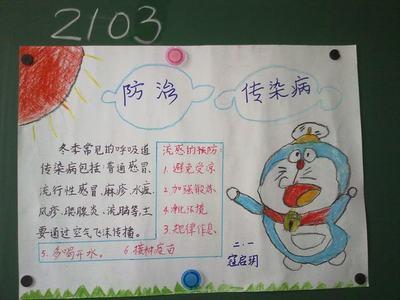 2103
防治 传染病
冬季常见的呼吸道
传染病包括:普通感冒、
流行性感冒、麻疹、水痘、
风疹、腮腺炎、流脑等,主
要通过空气飞沫传播。
流感的预防:
1. 避免受凉
2. 加强锻炼
4. 净化环境
3. 规律作息
5. 多喝开水。 6. 接种疫苗
二.一